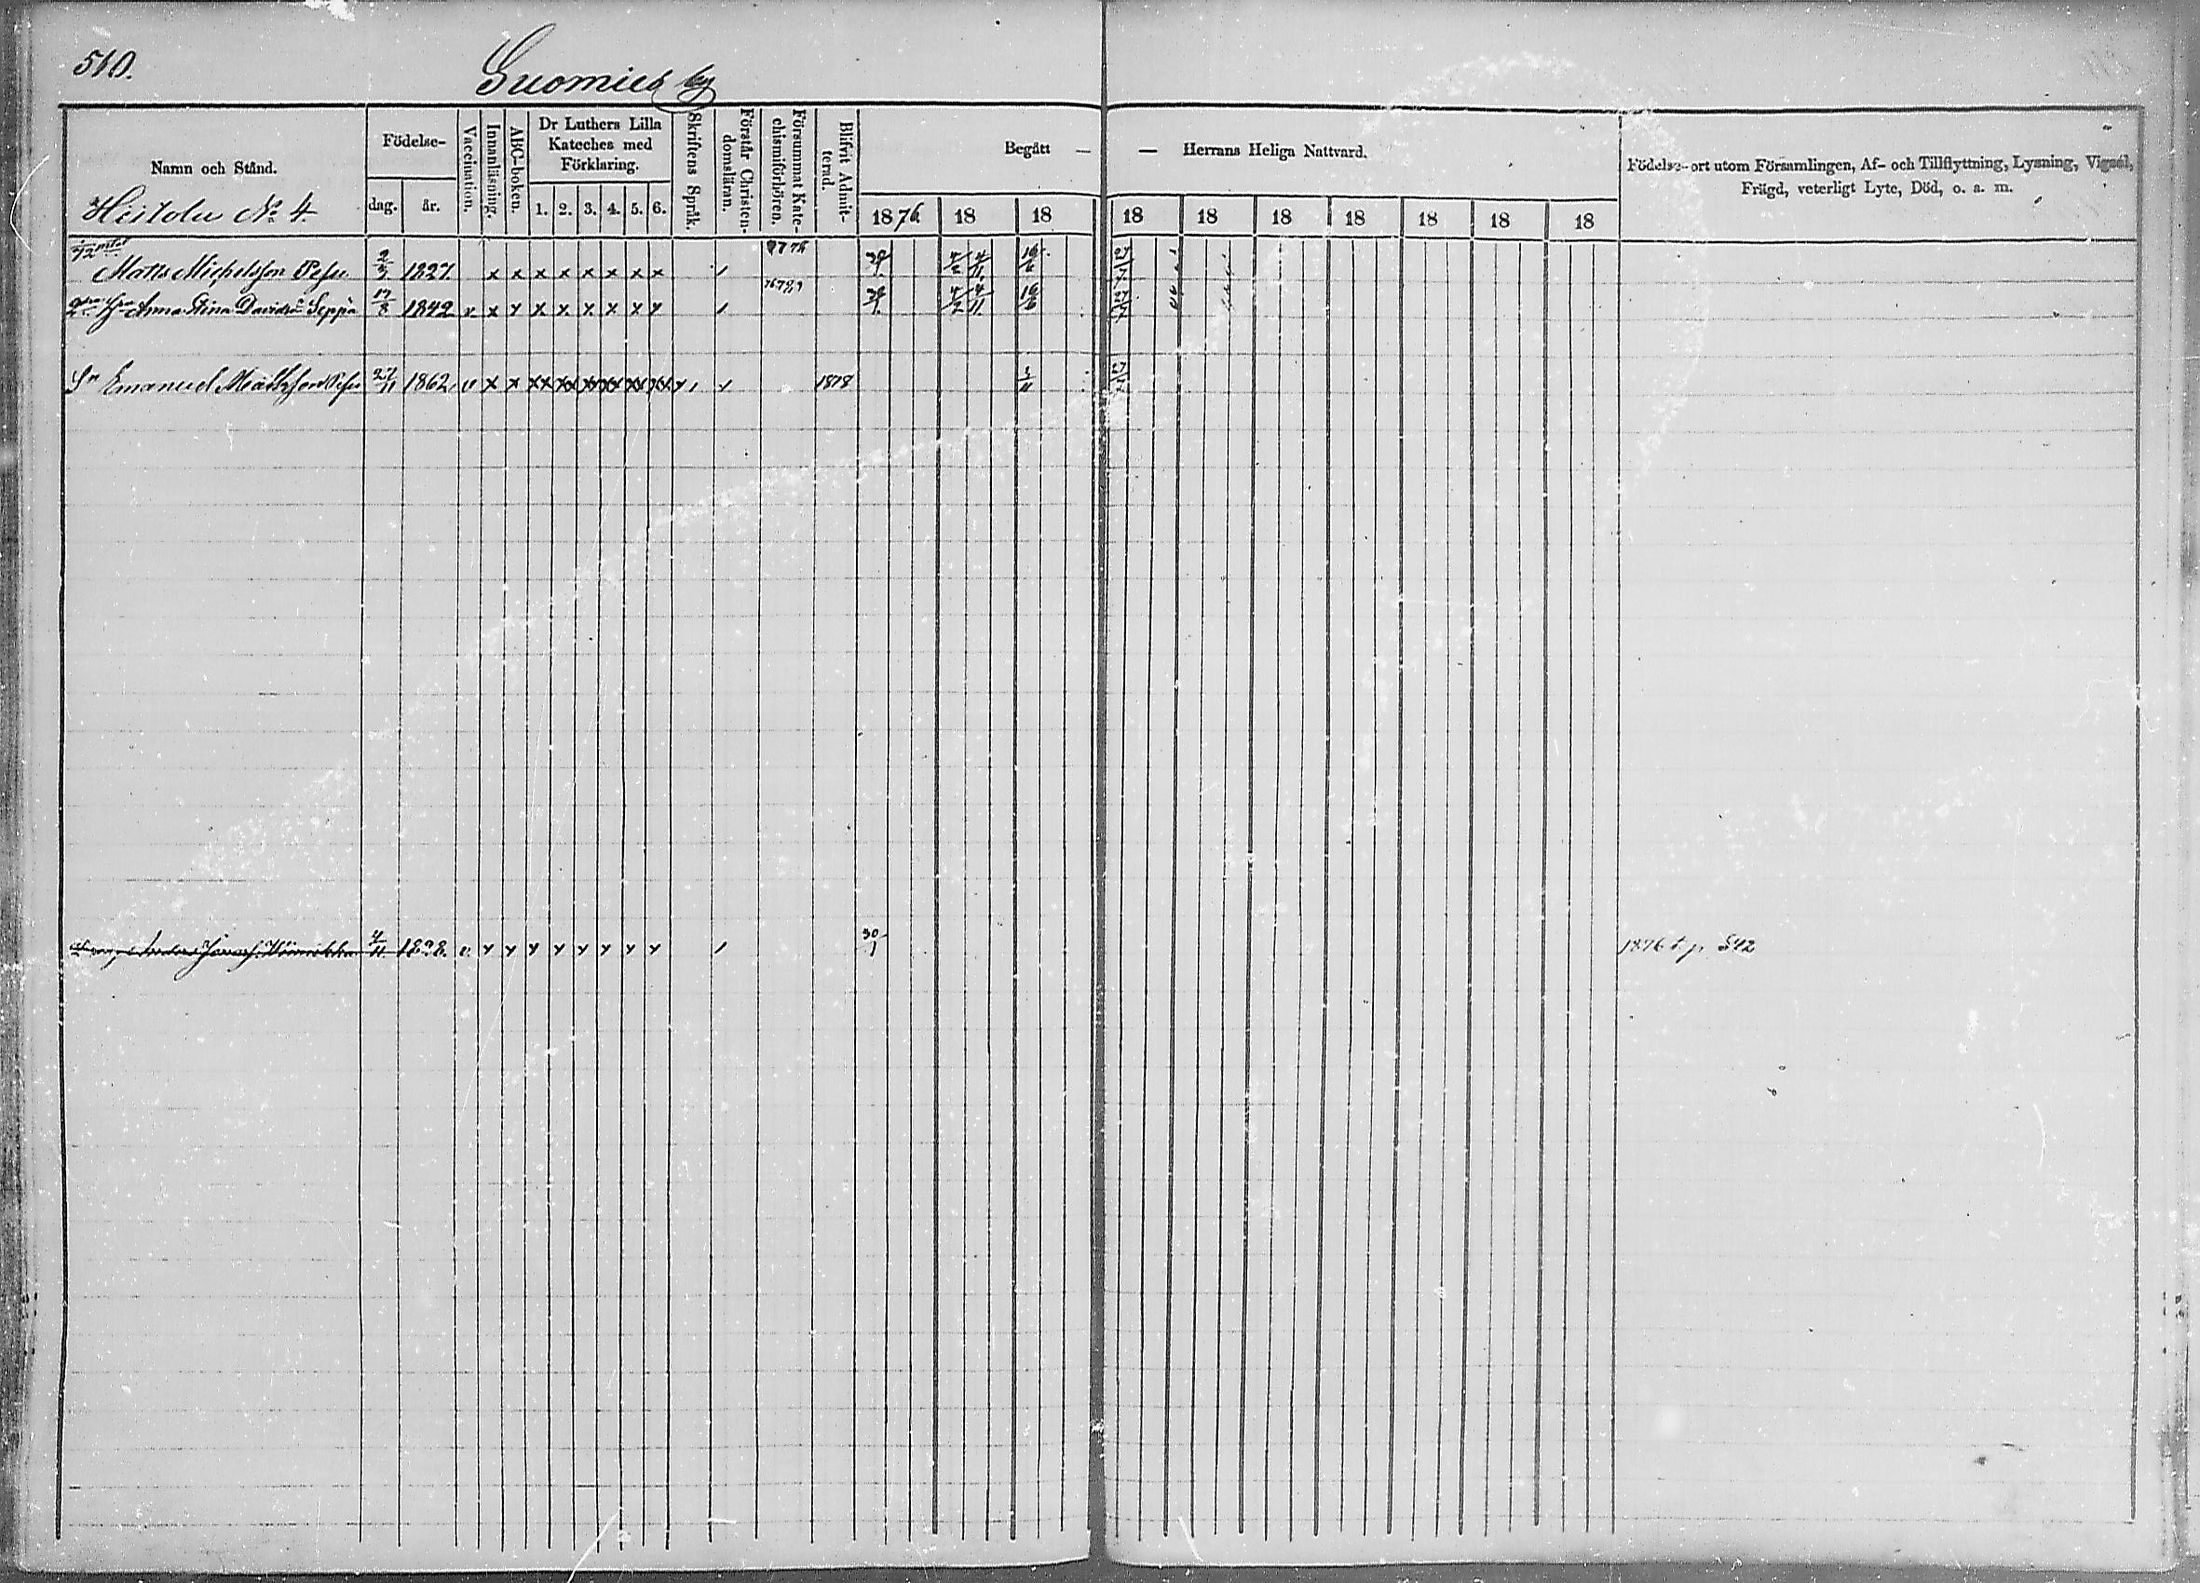 510.
Suomies by
Namn och Stånd.
Heitola No 4.
Födelse-
dag.
år.
Vaccination.
Innanläsning.
ABC-boken.
Dr Luthers Lilla
Kateches med
Förklaring.
1. 2. 3. 4. 5. 6.
Skriftens Språk.
Förstår Christen-
domsläran.
Försummat Kate-
chismiförhören.
Blifvit Admit-
terad.
Begått — — Herrans Heliga Nattvard.
1876. 18 18 18 18 18 18 18 18 18
Födelse-ort utom Församlingen, Af- och Tillflyttning, Lysning, Vigsel,
Frägd, veterligt Lyte, Död, o. a. m.
Matts Michelsson Pesu 2/3 1827. x x x x x x x x
Anna Stina Davidsdr Seppä 17/8 1842 v x x x x x x x x
Sn Emanuel Mattsson Pesu 27/11 1862, v x x xx xx xx xx xx xx 1878
Anders 4/11 1828. v. x x x x x x x x 30/1 1876 t. p. 542